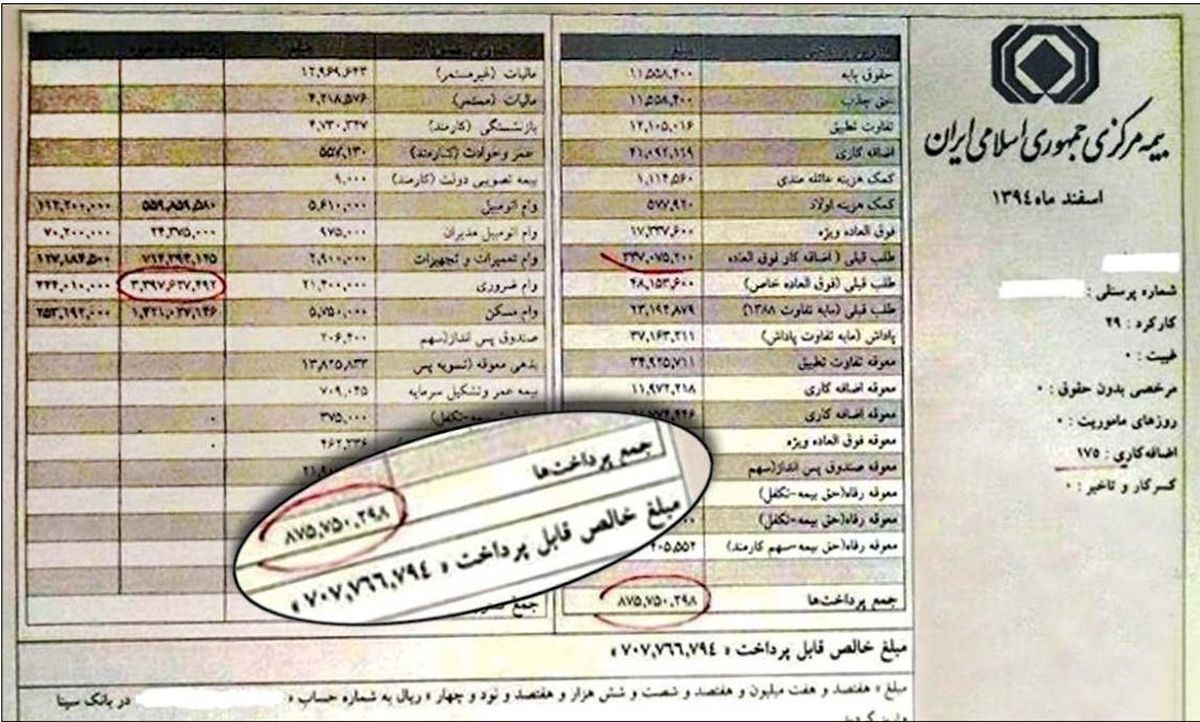 بیمه مرکزی جمهوری اسلامی ایران
اسفند ماه ۱۳۹٤
شماره پرسنلی :
کارکرد : ۲۹
غیبت : ۰
مرخصی بدون حقوق : ۰
روزهای ماموریت : ۰
اضافه‌کاری : ۱۷۵
کسرکار و تاخیر : ۰
مبلغ
حقوق پایه ۱۱,۵۵۸,۴۰۰
حق جذب ۱۱,۵۵۸,۴۰۰
تفاوت تطبیق ۱۲,۱۰۵,۰۱۶
اضافه کاری ۲۱,۰۹۲,۱۶۹
کمک هزینه عائله مندی ۱,۱۱۴,۵۶۰
کمک هزینه اولاد ۵۷۷,۹۲۰
فوق العاده ویژه ۱۷,۳۳۷,۶۰۰
طلب قبلی ( اضافه کار فوق العاده ۳۳۷,۰۷۵,۲۰۰
طلب قبلی (فوق العاده خاص) ۲۸,۱۵۳,۶۰۰
طلب قبلی (مابه تفاوت ۱۳۸۸) ۲۳,۱۹۲,۸۷۹
پاداش (مابه تفاوت پاداش) ۳۷,۱۶۳,۲۱۱
معوقه تفاوت تطبیق ۳۴,۹۲۵,۷۱۱
معوقه اضافه کاری ۱۱,۹۷۲,۲۱۸
معوقه اضافه کاری
معوقه فوق العاده ویژه
معوقه صندوق پس انداز(سهم
معوقه رفاه(حق بیمه-تکفل)
معوقه رفاه(حق بیمه-تکفل)
معوقه رفاه(حق بیمه-سهم کارمند)
جمع پرداخت‌ها ۸۷۵,۷۵۰,۲۹۸
مالیات (غیرمستمر) ۱۲,۹۶۹,۶۴۳
مالیات (مستمر) ۴,۲۱۸,۵۷۶
بازنشستگی (کارمند) ۴,۷۳۰,۳۴۷
عمر وحوادث (کارمند) ۵۵۷,۱۳۰
بیمه تصویبی دولت (کارمند) ۹,۰۰۰
وام اتومبیل ۵,۶۱۰,۰۰۰ ۵۵۹,۸۵۹,۵۸۰ ۱۲۲,۲۰۰,۰۰۰
وام اتومبیل مدیران ۹۷۵,۰۰۰ ۲۴,۳۷۵,۰۰۰ ۷۰,۲۰۰,۰۰۰
وام تعمیرات و تجهیزات ۲,۹۰۰,۰۰۰ ۷۱۲,۲۹۳,۱۲۵ ۱۲۷,۱۸۴,۵۰۰
وام ضروری ۲۱,۲۰۰,۰۰۰ ۳,۳۹۷,۶۲۷,۴۹۲ ۲۴۴,۰۱۰,۰۰۰
وام مسکن ۵,۷۵۰,۰۰۰ ۱,۳۲۱,۰۳۷,۱۴۶ ۲۵۳,۱۹۲,۰۰۰
صندوق پس انداز(سهم ۲۰۶,۴۰۰
بدهی معوقه (تسویه پس ۱۳,۸۲۵,۸۳۳
بیمه عمر وتشکیل سرمایه ۷۰۹,۰۲۵
۳۷۵,۰۰۰ ۰
۴۶۲,۳۳۶ ۰
جمع پرداخت‌ها
۸۷۵,۷۵۰,۲۹۸
مبلغ خالص قابل پرداخت « ۷۰۷,۷٦٦,۷۹٤ »
مبلغ خالص قابل پرداخت « ۷۰۷,۷٦٦,۷۹٤ »
مبلغ « هفتصد و هفت میلیون و هفتصد و شصت و شش هزار و هفتصد و نود و چهار » ریال به شماره حساب « در بانک سینا